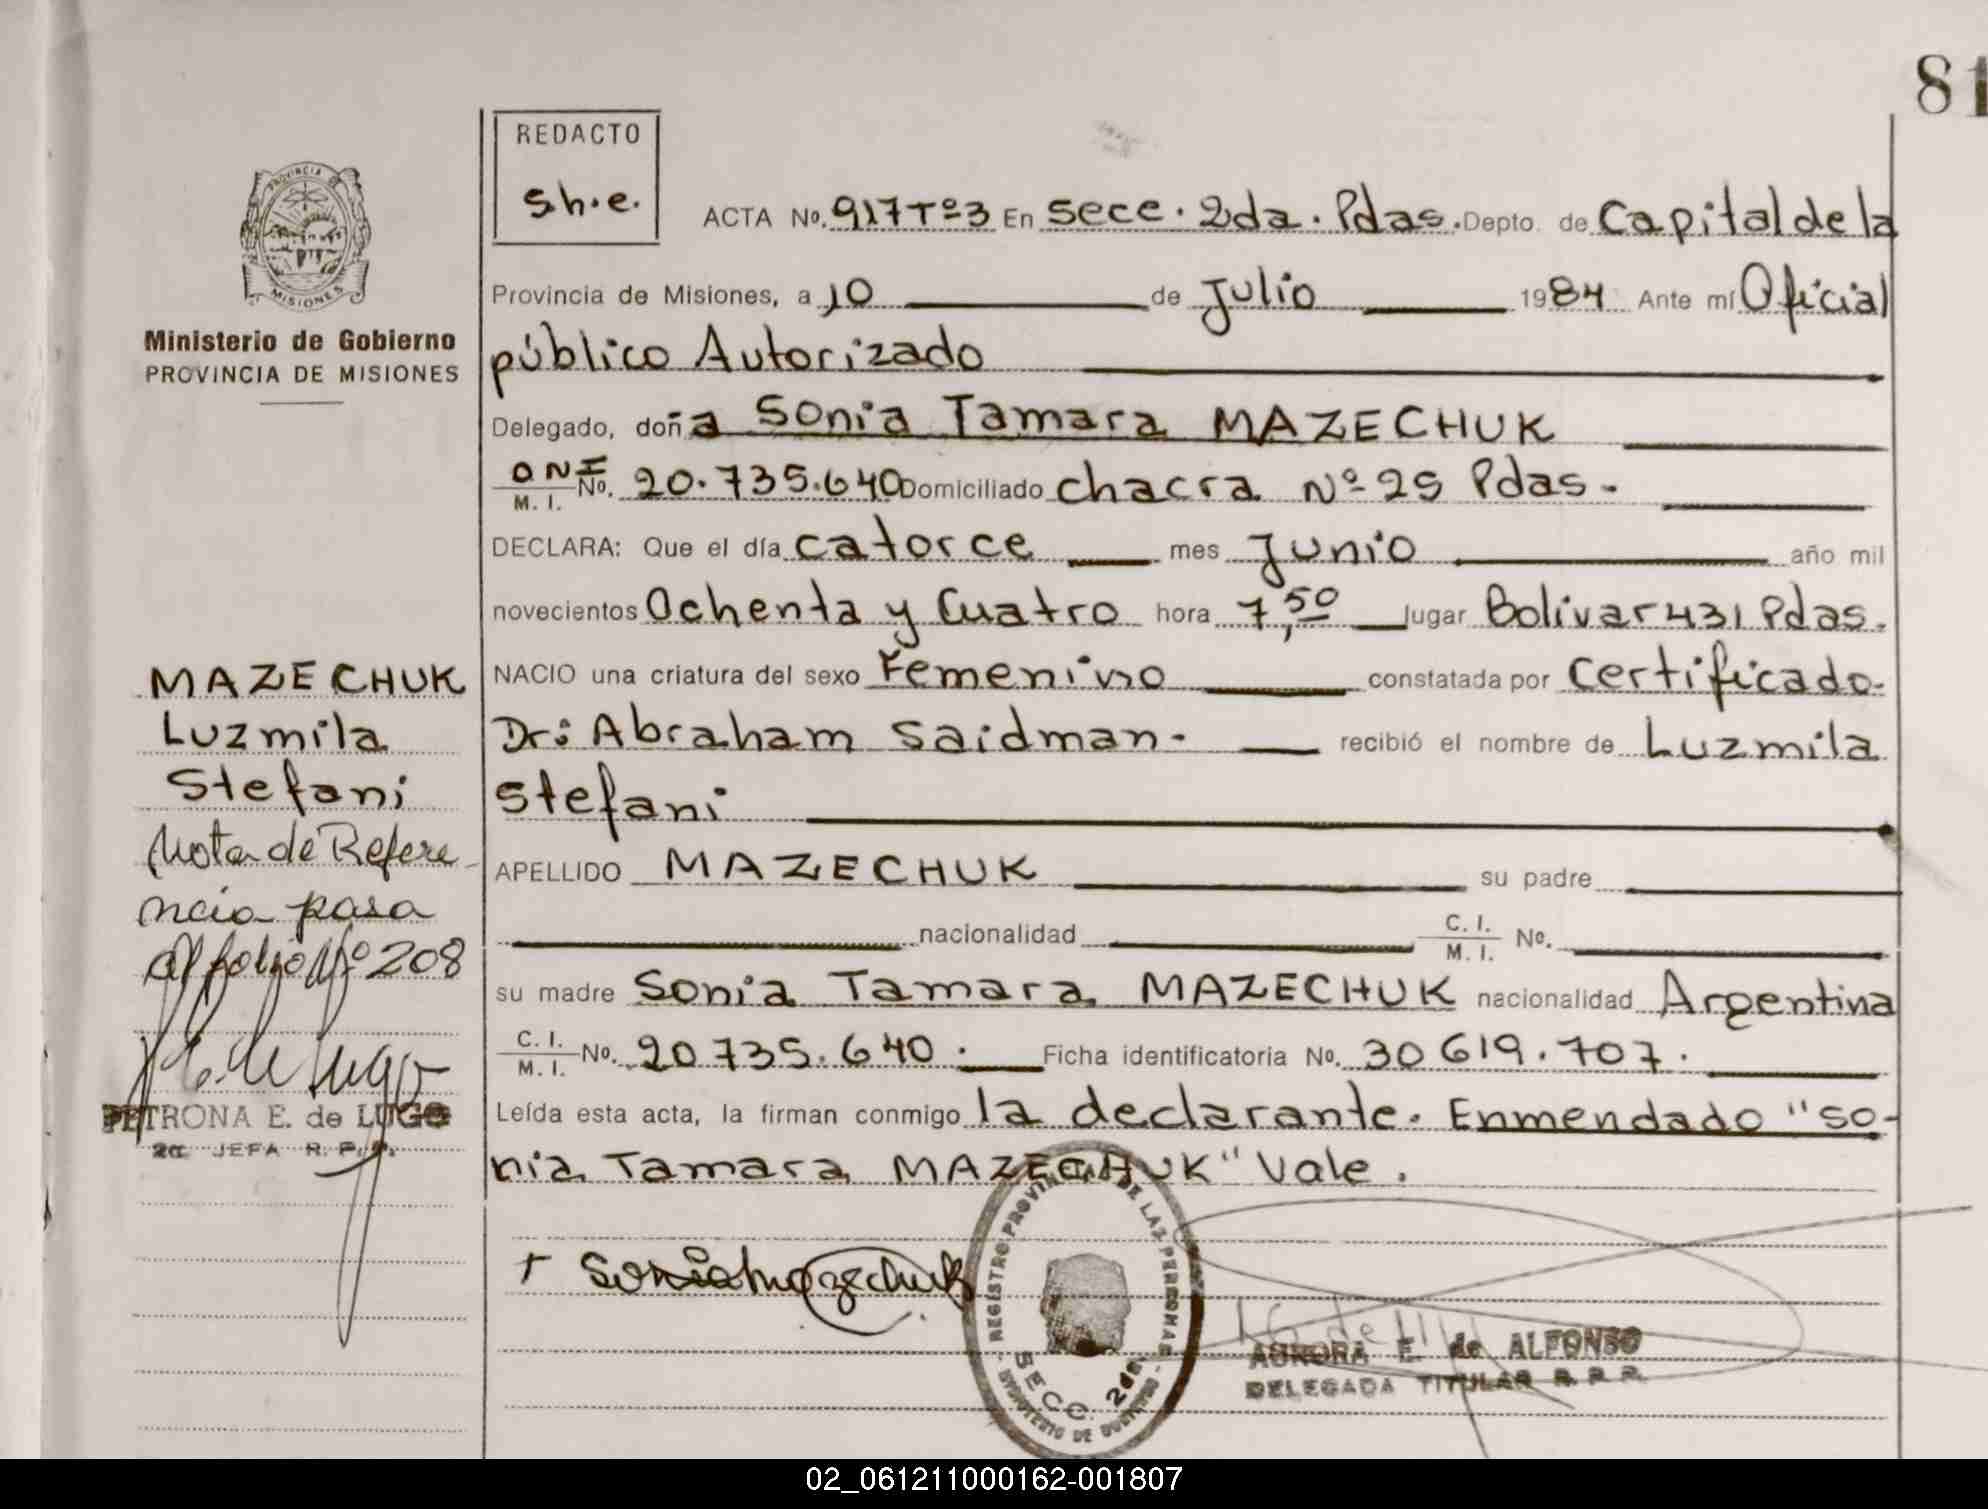 81
REDACTO
S.h.e.
PROVINCIA DE
MISIONES
Ministerio de Gobierno
PROVINCIA DE MISIONES
ACTA No. 917 Tº 3 En secc. 2da. Pdas. Depto. de Capital de la
Provincia de Misiones, a 10 de Julio 1984 Ante mí Oficial
público Autorizado
Delegado, doña Sonia Tamara MAZECHUK
DNI M. I. No. 20.735.640 Domiciliado chacra Nº 25 Pdas.
DECLARA: Que el día catorce mes Junio año mil
novecientos Ochenta y Cuatro hora 7,50 lugar Bolivar 431 Pdas.
NACIO una criatura del sexo Femenino constatada por certificado.
Dr: Abraham Saidman. recibió el nombre de Luzmila
Stefani
APELLIDO MAZECHUK su padre
nacionalidad C. I. M. I. No.
su madre Sonia Tamara MAZECHUK nacionalidad Argentina
C. I. M. I. No. 20 735.640. Ficha identificatoria No. 30 619.707.
Leída esta acta, la firman conmigo la declarante. Enmendado "So-
nia Tamara MAZECHUK" Vale.
MAZECHUK
Luzmila
Stefani
Nota de Refere
ncia pasa
al folio Nº 208
PETRONA E. de LUGO
2a. JEFA R. P. P.
Sonia Mazechuk
REGISTRO PROVINCIAL DE LAS PERSONAS
SECC. 2da.
MINISTERIO DE GOBIERNO
AURORA E. de ALFONSO
DELEGADA TITULAR R. P. P.
02_061211000162-001807